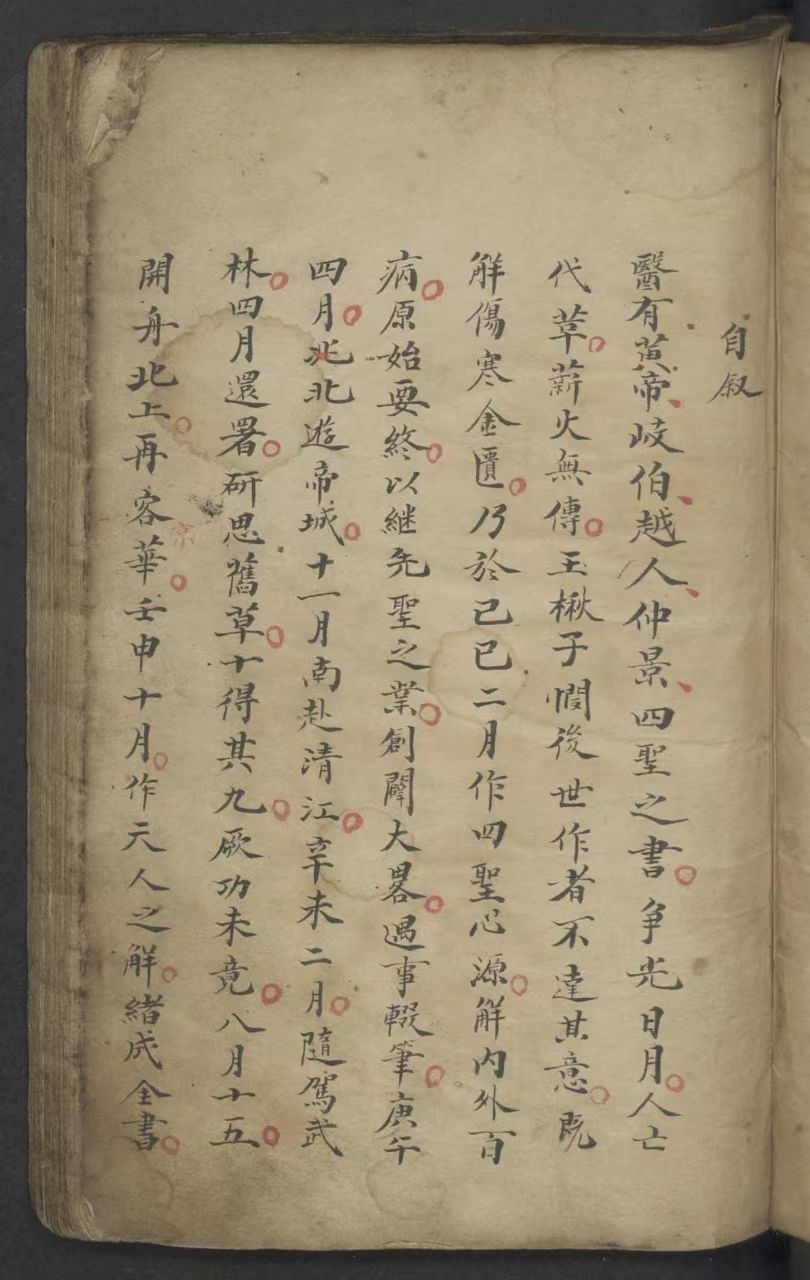 自叙
醫有黄帝岐伯越人仲景四聖之書爭光日月人亡
代革薪火無傳玉楸子憫後世作者不達其意既
解傷寒金匱乃於己巳二月作四聖心源解内外百
病原始要終以継先聖之業創闢大畧遇事輟筆庚午
四月兆北遊帝城十一月南赴清江辛未二月隨駕武
林四月還署研思舊草十得其九厥功未竟八月十五
開舟北上再客京華壬申十月作天人之解緒成全書